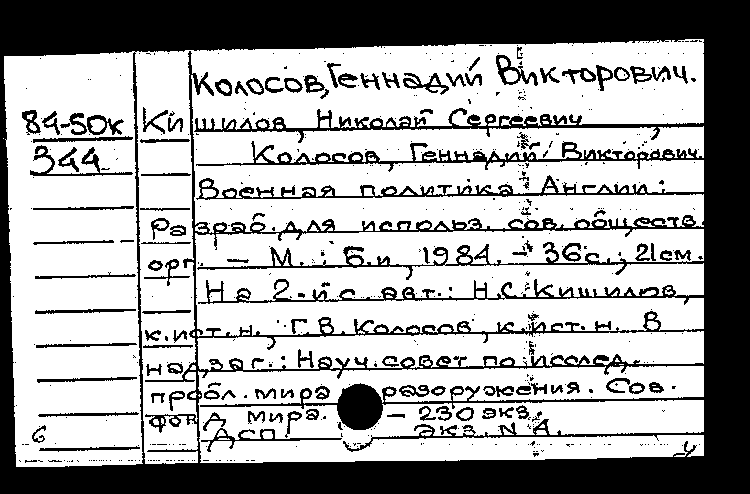 Колосов, Геннадий Викторович.
84-50к Кишилов, Николай Сергеевич,
344 Колосов, Геннадий Викторович.
Военная политика Англии:
Разраб. для использ. сов. обществ.
орг. – М.: Б.и, 1984. – 36с.; 21см.
На 2-й с авт.: Н.С. Кишилов,
к.ист.н., Г.В. Колосов, к.ист.н. В
надзаг.: Науч. совет по исслед.
пробл. мира разоружения. Сов.
фонд мира. – 230 экз.
6 ДСП. экз. N А.